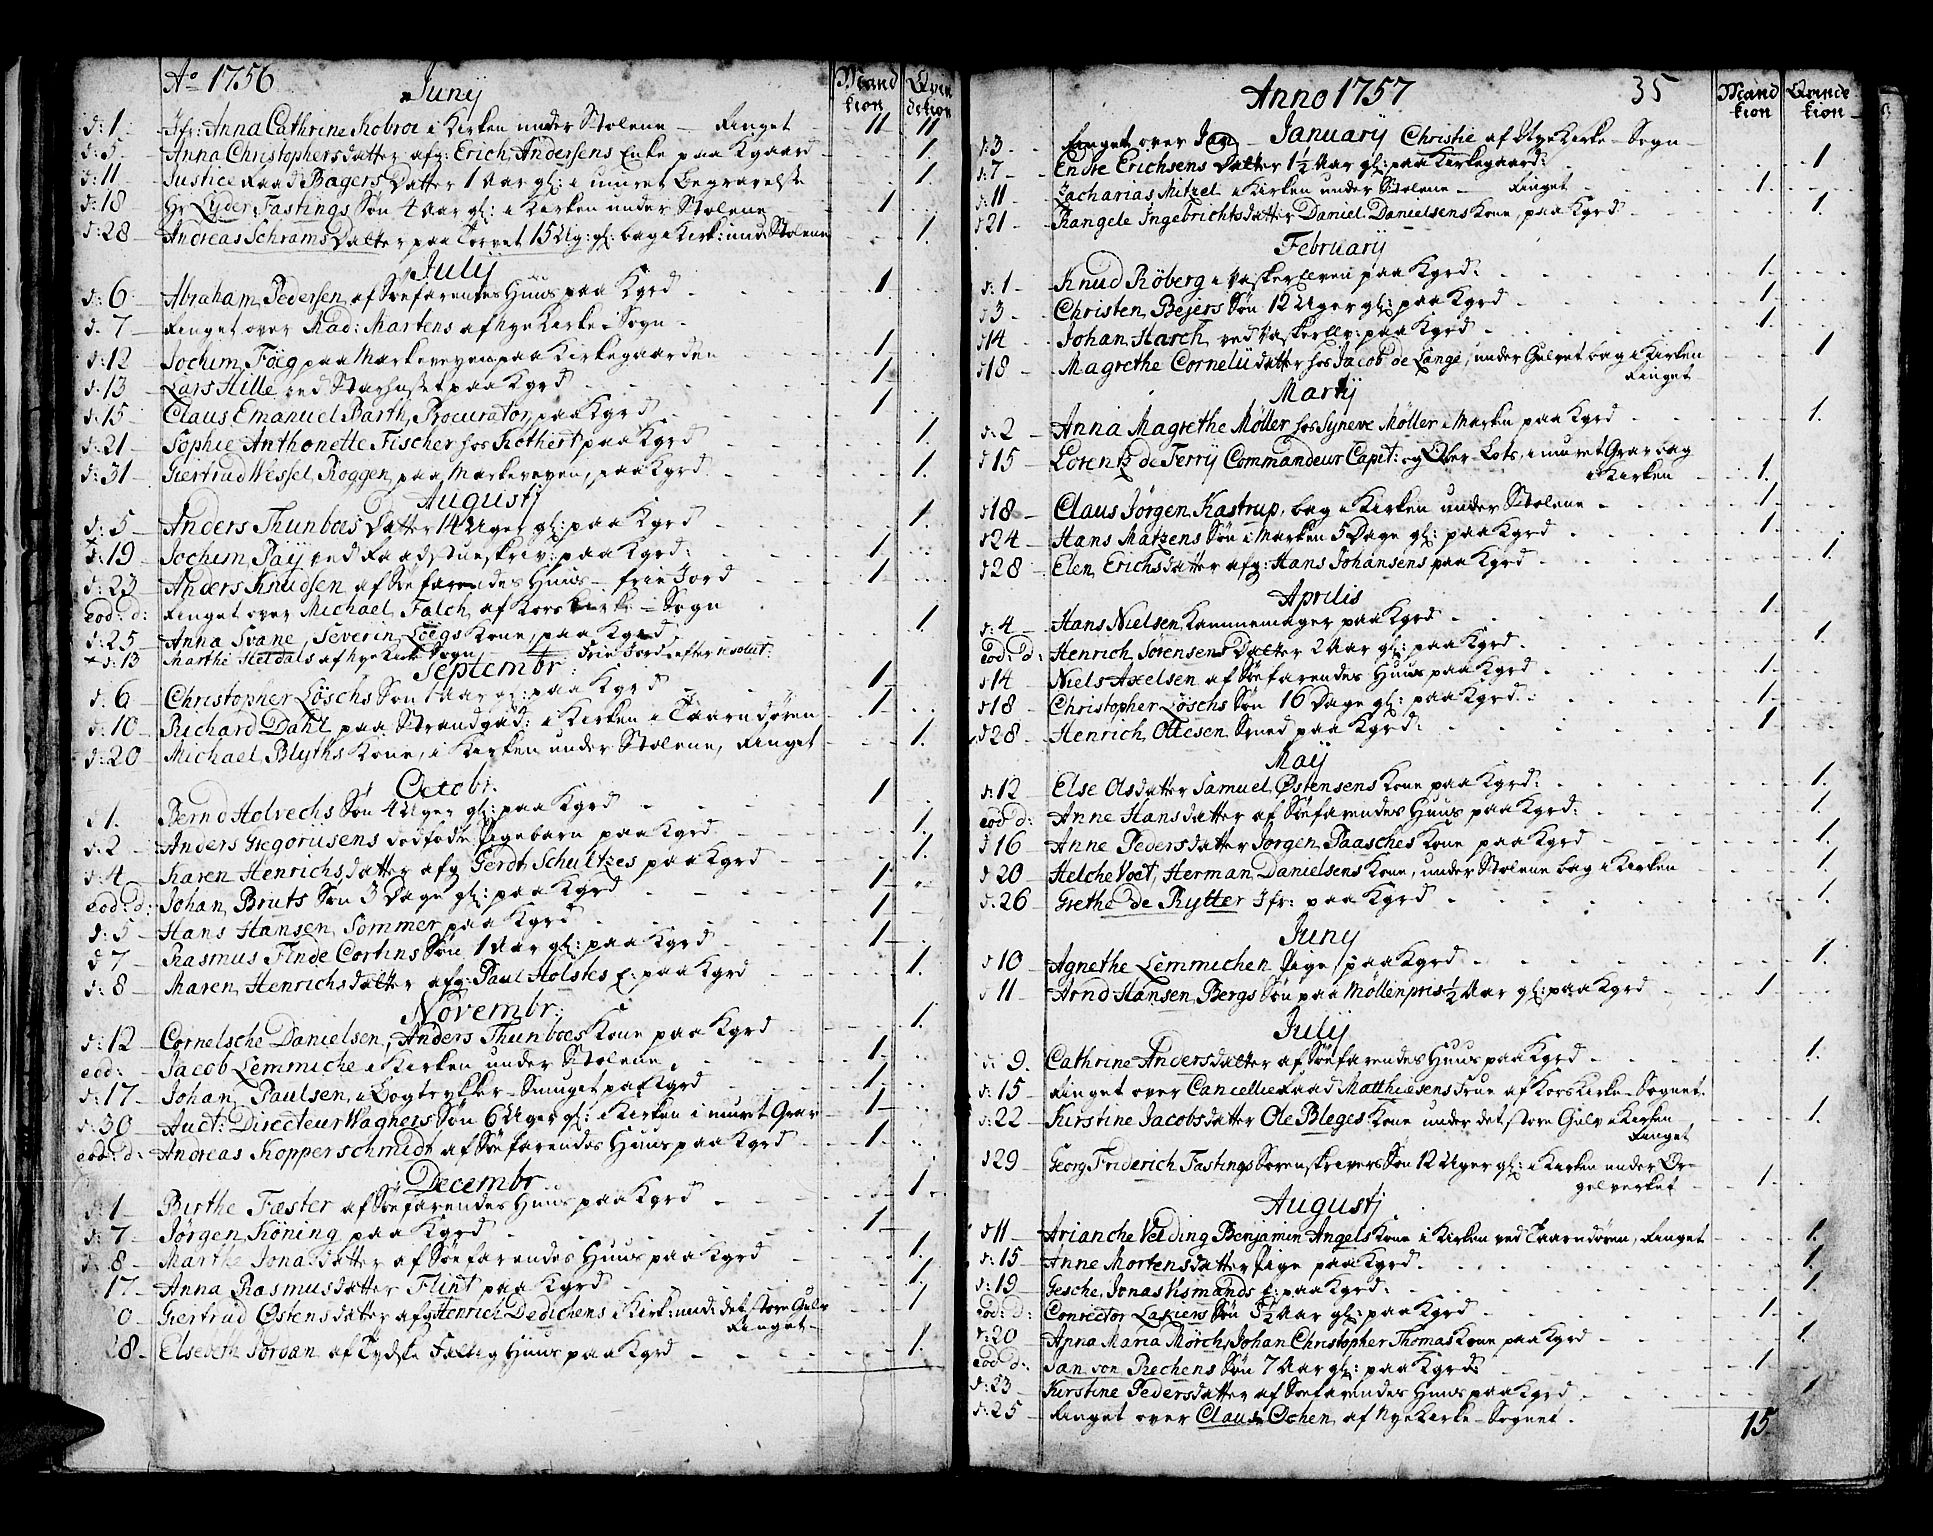 Ao 1756
Mand kion
Qvin dekion
Juny
d: 1 Jfr: Anna Cathrine Kobroe i Kirken under Stolene - Ringet
d: 5 Anna Christophersdatter afg: Erich Andersens Enke paa Kgaard 1.
d: 11 Justice Raad Bagers Datter 1 Aar gl: i muret Begravelse 1.
d: 18 Hr Lyder Fastings Søn 4 Aar gl: i Kirken under Stolene 1
d: 28 Andreas Schrams Datter paa Torvet 15 Ug: gl: bag i Kirk: und: Stolene 1.
July
d: 6 Abraham Pedersen af Søefarendes Huus paa Kgrd 1.
d. 7 Ringet over Mad: Martens af Nye Kirke Sogn
d: 12 Jochum Föeg paa Markeveyen paa Kirkegaarden 1.
d: 13 Lars Hille ved Starhuset paa Kgrd 1.
d: 15 Claus Emanuel Barth, Procurator, paa Kgrd 1
d: 21 Sophie Anthonette Fischer hos Kothert paa Kgrd 1.
d: 31 Giertrud Wessel Roggen, paa Markeveyen, paa Kgrd 1.
Augustj
d: 5 Anders Thunboes Datter 14 Uger gl: paa Kgrd 1.
d: 19 Jochum Pay ved Raadstueskriv: paa Kgrd: 1
d: 23 Anders Knudsen af Søefarendes Huus - frie Jord 1.
eod: d: Ringet over Michael Falch af Kors Kirke - Sogn
d: 25 Anna Svane, Severin Leegs Kone, paa Kgrd 1.
+ d: 13 Marthe Heldals af Nye Kirk Sogn Frie Jord efter resolut:
Septembr:
d: 6 Christopher Löschs Søn 1 Aar gl: paa Kgrd 1.
d: 10 Richard Dahl paa Strandgad: i Kirken i Taarndøren 1.
d: 20 Michael Blyths Kone, i Kirken under Stolene, Ringet 1.
Octobr.
d 1. Bernd Holvechs Søn 4 Uger gl: paa Kgrd 1.
d: 2 Anders Gregoriisens dødfødte Pigebarn paa Kgrd. 1.
d: 4 Karen Henrichsdatter afg Gerdt Schultzes paa Kgrd 1.
eod: d: Johan Bruts Søn 3 Dage gl: paa Kgrd 1.
d: 5 Hans Hansen Sommer paa Kgrd 1.
d 7 Rasmus Finde Cortins Søn 1 Aar gl: paa Kgrd 1.
d: 8 Maren Henrichsdatter afg: Paul Holstes E: paa Kgrd 1.
Novembr:
d: 12 Cornelsche Danielsen, Anders Thunboes Kone paa Kgrd 1.
eod: Jacob Lemmiche i Kirken under Stolene 1.
d: 17 Johan Paulsen, i Bogtrykker-Smuget paa Kgrd 1.
d: 30 Auct: Directeur Wagners Søn 6 Uger gl: i Kirken i muret Grav 1
eod: d: Andreas Kopperschmidt af Søefarendes Huus paa Kgrd 1.
Decembr
d: 1 Birthe Fæster af Søefarendes Huus paa Kgrd 1.
d: 7 Jørgen Köning paa Kgrd 1
d: 8 Marthe Jonasdatter af Søefarendes Huus paa Kgrd 1.
17 Anna Rasmusdatter Flint paa Kgrd 1.
0 Giertrud Østensdatter afg Henrich Dedichens i Kirk: und: det store Gulv 1
Ringet
28 Elsebeth Jordan af Tydske Fattig Huus paa Kgrd 1.
Anno 1757
35
Mand kion
Qvinde kion
January
d: 3 Ringet over Jan Christie af Nye Kirke - Sogn
d: 7 Endre Erichsens Datter 1½ Aar gl: paa Kirkegaard: 1
d: 11 Zacharias Mitzel i Kirken under Stolene Ringet 1.
d 21 Rangele Ingebrichtsdatter Daniel Danielsens Kone, paa Kgrd 1.
February
d: 1 Knud Röberg i Vaskerelven paa Kgrd: 1.
d 3 Christen Bejers Søn 12 Uger gl: paa Kgrd 1.
d 14 Johan Harch ved Vaskerelv: paa Kgrd 1.
d 18 Magrethe Cornelii datter hos Jacob de Lange, under Gulvet bag i Kirken 1
Ringet
Martij
d: 2 Anna Magrethe Møller hos Syneve Møller i Marken paa Kgrd 1.
d 15 Lorentz de Ferry Commandeur Capit: og Ober Lots, i muret Grav bag
i Kirken 1.
d 18 Claus Jörgen Kastrup, bag i Kirken under Stolene 1.
d 24 Hans Matzens Søn i Marken 5 Dage gl: paa Kgrd 1.
d 28 Elen Erichsdatter afg: Hans Johansens paa Kgrd 1.
Aprilis
d: 4 Hans Nielsen Kammemager paa Kgrd 1.
eod: d: Henrich Sørensens Datter 2 Aar gl: paa Kgrd 1.
d 14 Niels Axelsen af Søefarendes Huus paa Kgrd 1.
d 18 Christopher Löschs Søn 16 Dage gl: paa Kgrd: 1.
d 28 Henrich Ottesen Smed paa Kgrd: 1
May
d: 12 Else Olsdatter Samuel Østensens Kone paa Kgrd: 1.
eod d: Anne Hansdatter af Søefarendes Huus paa Kgrd: 1.
d 16 Anne Pedersdatter Jørgen Paasches Kone paa Kgrd 1.
d 20 Helche Voet, Herman Danielsens Kone, under Stolene bag i Kirken 1.
d: 26 Grethe de Rytter Jfr: paa Kgrd 1.
Juny
d 10 Agnethe Lemmichen Pige, paa Kgrd 1.
d 11 Arnd Hansen Bergs Søn paa Möllenpris ½ Aar gl: paa Kgrd 1
July
d: 9. Cathrine Andersdatter af Søefarendes Huus paa Kgrd 1.
d: 15 Ringet over Cancellie Raad Matthiesens Frue af Kors Kirke-Sognet.
d: 22 Kirstine Jacobsdatter Ole Bleges Kone under det store Gulv i Kirken 1.
Ringet
d 29 Georg Friderich Fastings Sorenskrivers Søn 12 Uger gl: i Kirken under Or-
gelverket 1.
Augustj
d 11 Arianche Velding Benjamin Angels Kone i Kirken ved Taarndøren, Ringet 1.
d: 15 Anne Mortensdatter Pige paa Kgrd. 1.
d: 19 Gesche Jonas Vismands E: paa Kgrd: 1.
eod: d: Conrector Lakiers Søn 5½ Aar gl: paa Kgrd 1.
d: 20 Anna Maria Mörch, Johan Christopher Thomas Kone paa Kgrd 1.
eod d: Jan von Rechens Søn 7 Aar gl: paa Kgrd: 1
d: 23 Kirstine Pedersdatter af Søefarendes Huus paa Kgrd 1
d: 25 Ringet over Claus Ochen af Nye Kirke-Sognet.
15.